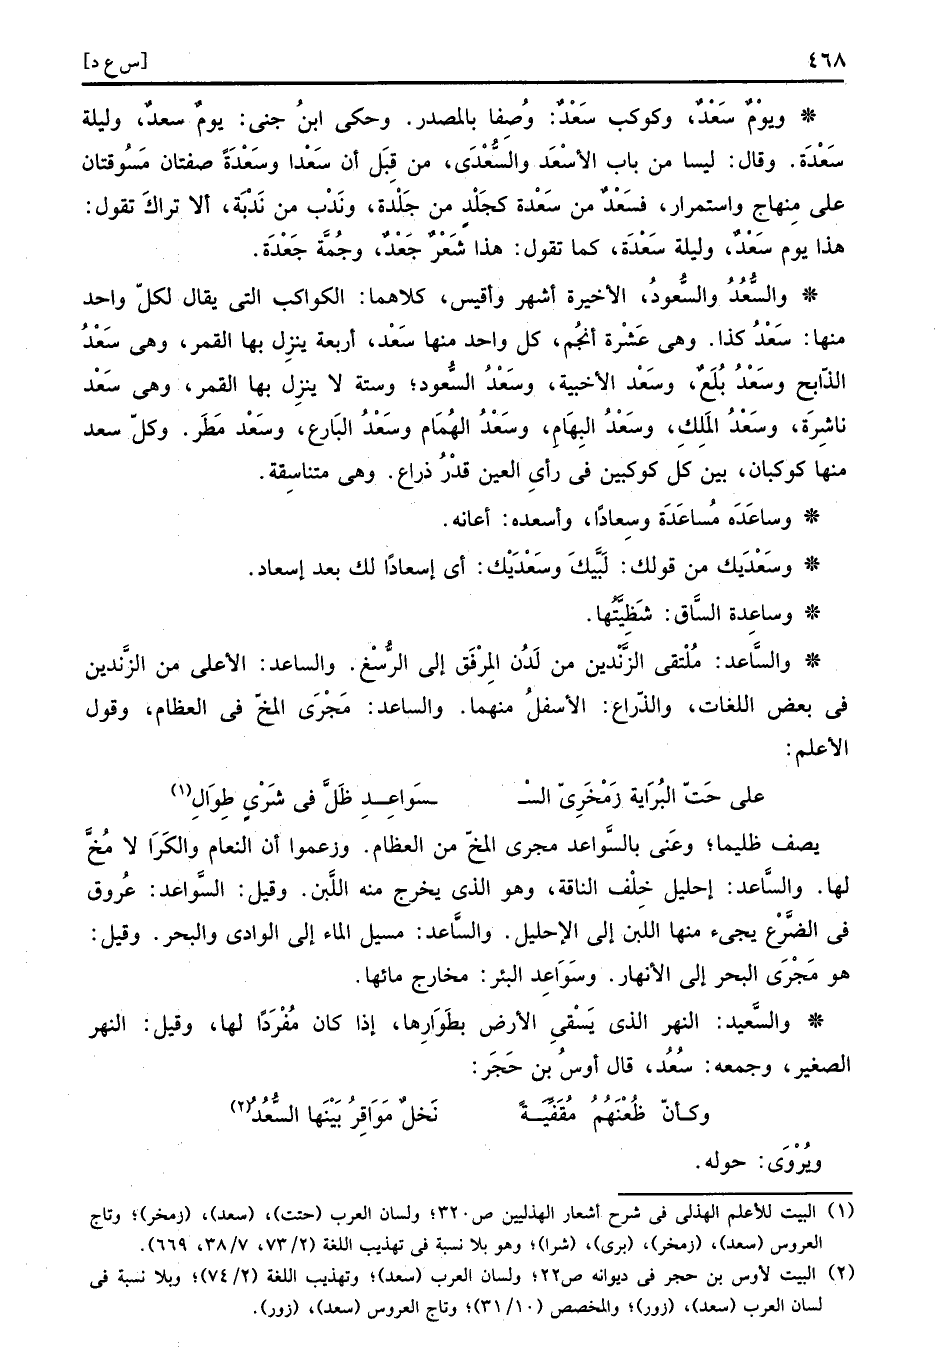 ٤٦٨ [س ع د]
* ويوْمٌ سَعْدٌ، وكوكب سَعْدٌ: وُصِفا بالمصدر. وحكى ابنُ جنى: يومٌ سعدٌ، وليلة
سَعْدَة. وقال: ليسا من باب الأسْعَد والسُّعْدَى، من قِبَل أن سَعْدا وسَعْدَةً صفتان مَسُوقتان
على مِنهاج واستمرار، فسَعْدٌ من سَعْدة كجَلْدٍ من جلَدة، ونَدْب من نَدْبَة، ألا تراكَ تقول:
هذا يوم سَعْدٌ، وليلة سَعْدَة، كما تقول: هذا شَعْرٌ جَعْدٌ، وجُمَّة جَعْدَة.
* والسُّعُدُ والسُّعودُ، الأخيرة أشهر وأقيس، كلاهما: الكواكب التى يقال لكلّ واحد
منها: سَعْدُ كذا. وهى عَشْرة أنجُم، كل واحد منها سَعْد، أربعة ينزِل بها القمر، وهى سَعْدُ
الذّابح وسَعْدُ بُلَعٌ، وسَعْد الأخبية، وسَعْدُ السُّعود؛ وستة لا ينزِل بها القمر، وهى سَعْد
ناشِرَة، وسَعْدُ المَلِكِ، وسَعْدُ البِهَامِ، وسَعْدُ الهُمَام وسَعْدُ البَارع، وسَعْد مَطَر. وكلّ سعد
منها كوكبان، بين كل كوكبين فى رأى العين قدْرُ ذراع. وهى متناسقِة.
* وساعَدَه مُساعَدَة وسِعادًا، وأسعده: أعانه.
* وسَعْدَيك من قولك: لَبَّيكَ وسَعْدَيْك: أى إسعادًا لك بعد إسعاد.
* وساعِدة السَّاق: شَظِيَّتُها.
* والسَّاعد: مُلْتقى الزَّنْدين من لَدُن المِرْفَق إلى الرُّسْغ. والساعد: الأعلى من الزَّندين
فى بعض اللغات، والذّراع: الأسفلُ منهما. والساعد: مَجْرَى المخّ فى العظام، وقول
الأعلم:
على حَتّ البُرَاية زَمْخَرِىّ السـ ـسَواعِـدِ ظَلَّ فى شَرْىٍ طِوَالِ(١)
يصف ظليما؛ وعَنى بالسَّواعد مجرى المخّ من العظام. وزعموا أن النعام والكَرَا لا مُخَّ
لها. والسَّاعد: إحليل خِلْف الناقة، وهو الذى يخرج منه اللّبن. وقيل: السَّواعد: عُروق
فى الضَّرْع يجىء منها اللبن إلى الإحليل. والسَّاعد: مسيل الماء إلى الوادى والبحر. وقيل:
هو مَجْرَى البحر إلى الأنهار. وسَوَاعد البئر: مخارج مائها.
* والسَّعيد: النهر الذى يَسْقىِ الأرض بطَوَارِها، إذا كان مُفْرَدًا لها، وقيل: النهر
الصغير، وجمعه: سُعُد، قال أوسُ بن حَجَر:
وكـأنّ ظُعْنَهُمُ مُقَفِّيَـةً نَخلٌ مَوَاقِرُ بَيْنَها السُّعُدُ(٢)
ويُرْوَى: حوله.
(١) البيت للأعلم الهذلى فى شرح أشعار الهذليين ص٣٢٠؛ ولسان العرب (حتت)، (سعد)، (زمخر)؛ وتاج
العروس (سعد)، (زمخر)، (برى)، (شرا)؛ وهو بلا نسبة فى تهذيب اللغة (٢/ ٧٣، ٧/ ٣٨، ٦٦٩).
(٢) البيت لأوس بن حجر فى ديوانه ص٢٢؛ ولسان العرب (سعد)؛ وتهذيب اللغة (٢/ ٧٤)؛ وبلا نسبة فى
لسان العرب (سعد)، (زور)؛ والمخصص (١٠/ ٣١)؛ وتاج العروس (سعد)، (زور).